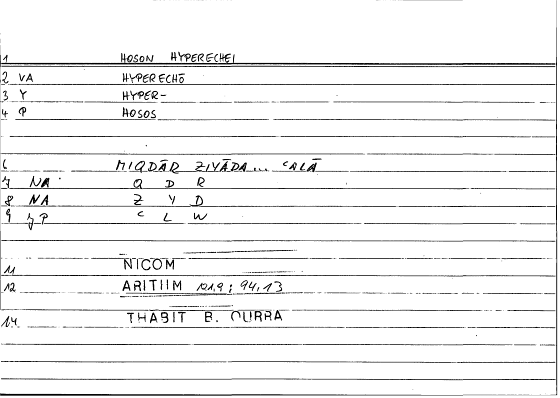 1 HOSON HYPERECHEI
2 VA HYPERECHŌ
3 Y HYPER-
4 P HOSOS
6 MIQDĀR ZIYĀDA... ʿALĀ
7 NA Q D R
8 NA Z Y D
9 JP ʿ L W
11 NICOM
12 ARITHM 121,9; 94,13
14 THABIT B. QURRA